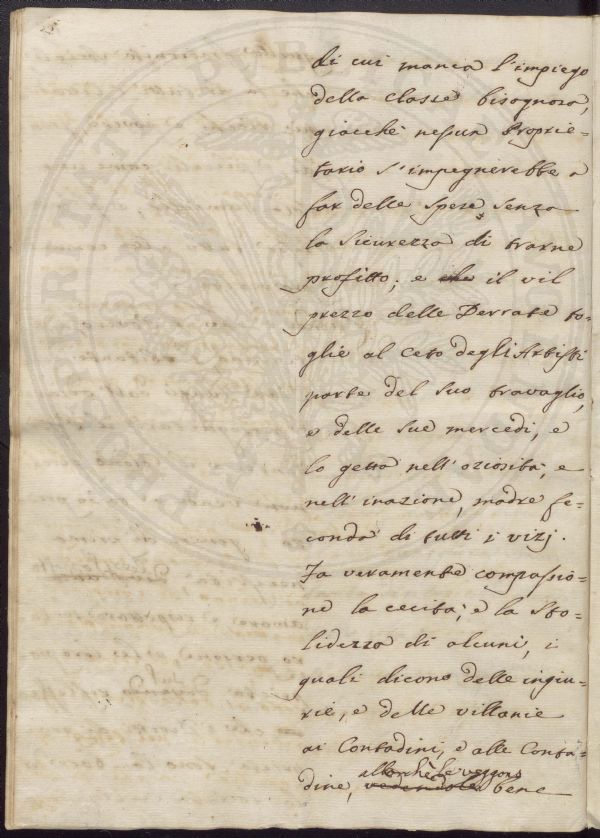 di cui manca l'impiego
della classe bisognosa,
giacchè nesun Proprie-
tario s'impegnerebbe a
far delle spese senza
la sicurezza di trarne
profitto; e che il vil
prezzo delle Derrate to-
glie al Ceto degli Artisti
parte del suo travaglio,
e delle sue mercedi, e
lo getta nell'oziosità, e
nell'inazione, madre fe-
conda di tutti i vizj.
Fa veramente compassio-
ne la cecità, e la sto-
lidezza di alcuni, i
quali dicono delle ingiu-
rie, e delle villanie
ai Contadini, e alle Conta-
allorchè le veggono
dine, vedendole bene